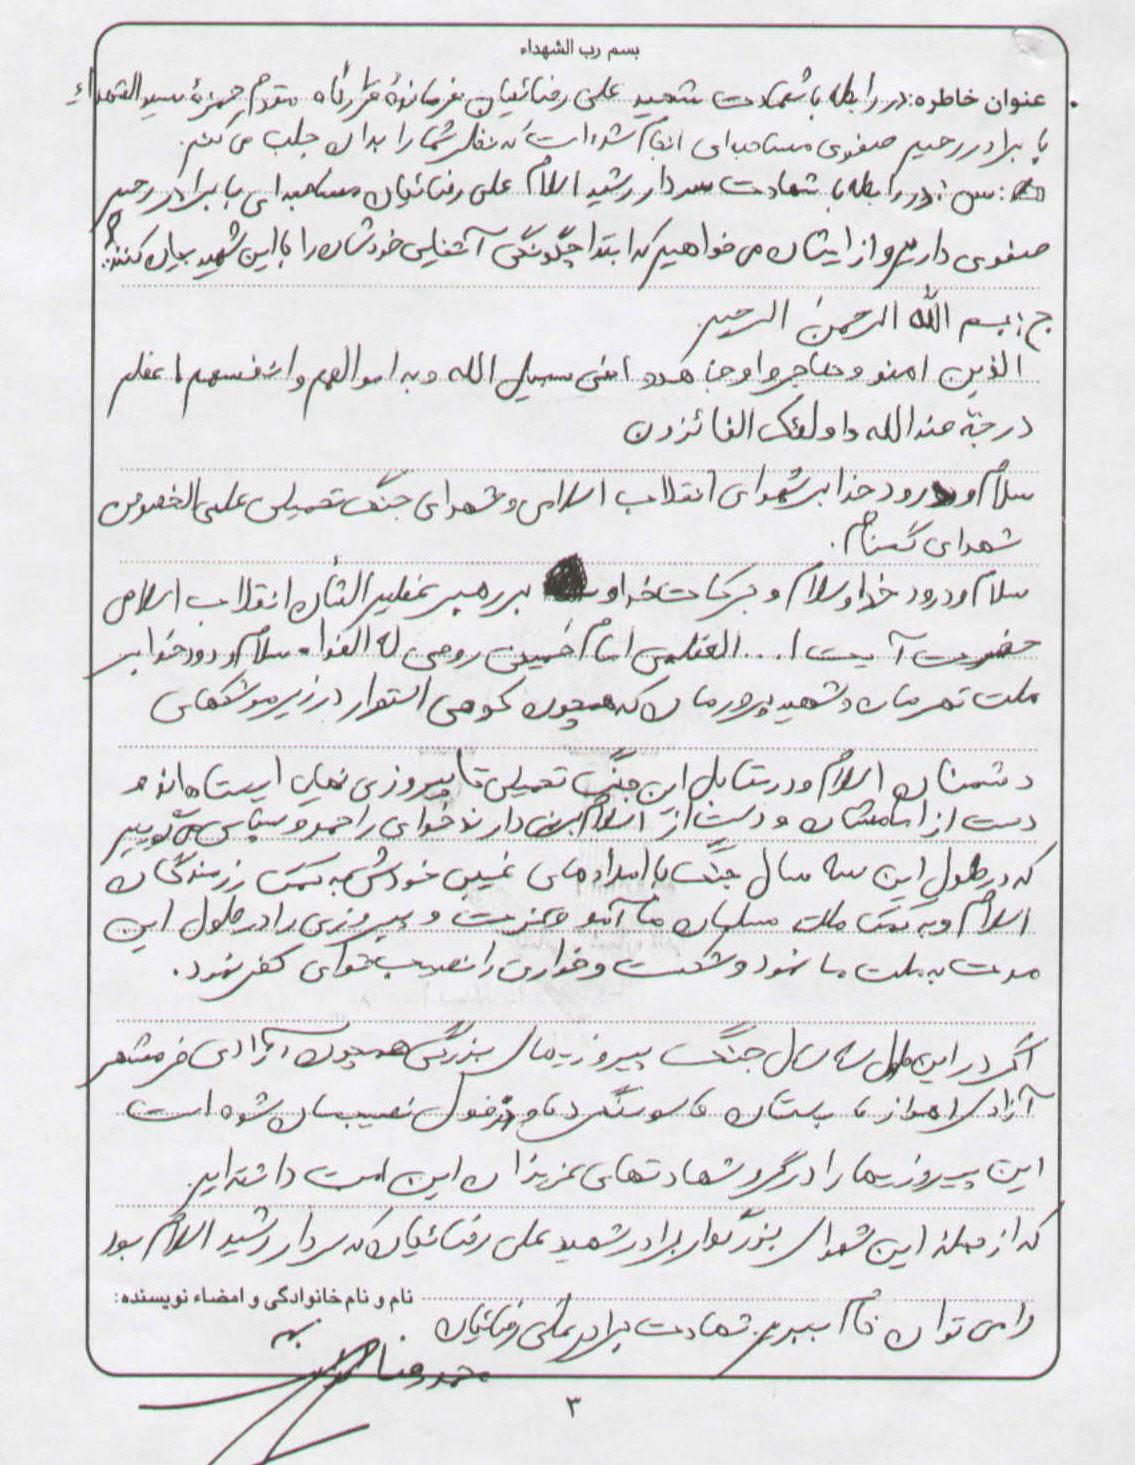 بسم رب الشهداء
عنوان خاطره: در رابطه با شهادت شهید علی رضائیان فرمانده قرارگاه مقدم حمزه سیدالشهداء
با برادر رحیم صفوی مصاحبه‌ای انجام شده است که نظر شما را بدان جلب می کنم.
س: در رابطه با شهادت سردار رشید اسلام علی رضائیان مصاحبه ای با برادر رحیم
صفوی داریم و از ایشان می خواهیم که ابتدا چگونگی آشنایی خودشان را با این شهید بیان کنند؟
ج: بسم الله الرحمن الرحیم
الذین امنو و هاجروا و جاهدوا فی سبیل الله و به اموالهم و انفسهم اعظم
درجة عندالله و اولئک الفائزون
سلام و درود خدا بر شهدای انقلاب اسلامی و شهدای جنگ تحمیلی علی الخصوص
شهدای گمنام.
سلام و درود خدا و سلام و برکات خداوند بر رهبر عظیم الشأن انقلاب اسلامی
حضرت آیت ا... العظمی امام خمینی روحی له الفداه سلام و درود خدا بر
ملت قهرمان و شهید پرورمان که همچون کوهی استوار در زیر موشکهای
دشمنان اسلام و در مقابل این جنگ تحمیلی تا پیروزی نهایی ایستاده‌اند و
دست از امامشان و دست از اسلام برندارند خدای را حمد و سپاس می گوییم
که در طول این سه سال جنگ با امدادهای غیبی خودش به کمک رزمندگان
اسلام و به کمک ملت مسلمان ما آمد و عزت و پیروزی را در طول این
مدت به ملت ما نمود و شکست و خواری را نصیب قوای کفر نمود.
اگر در این طول سه سال جنگ پیروزیهای بزرگی همچون آزادی خرمشهر
آزادی اهواز تا بستان تا سوسنگرد تا و دزفول نصیبمان شده است
این پیروزیها را در گرو شهادتهای عزیزان این امت داشته ایم.
که از جمله این شهدای بزرگوار برادر شهید علی رضائیان که سردار رشید اسلام بود
را می توان نام ببریم شهادت برادر علی رضائیان
نام و نام خانوادگی و امضاء نویسنده:
۳